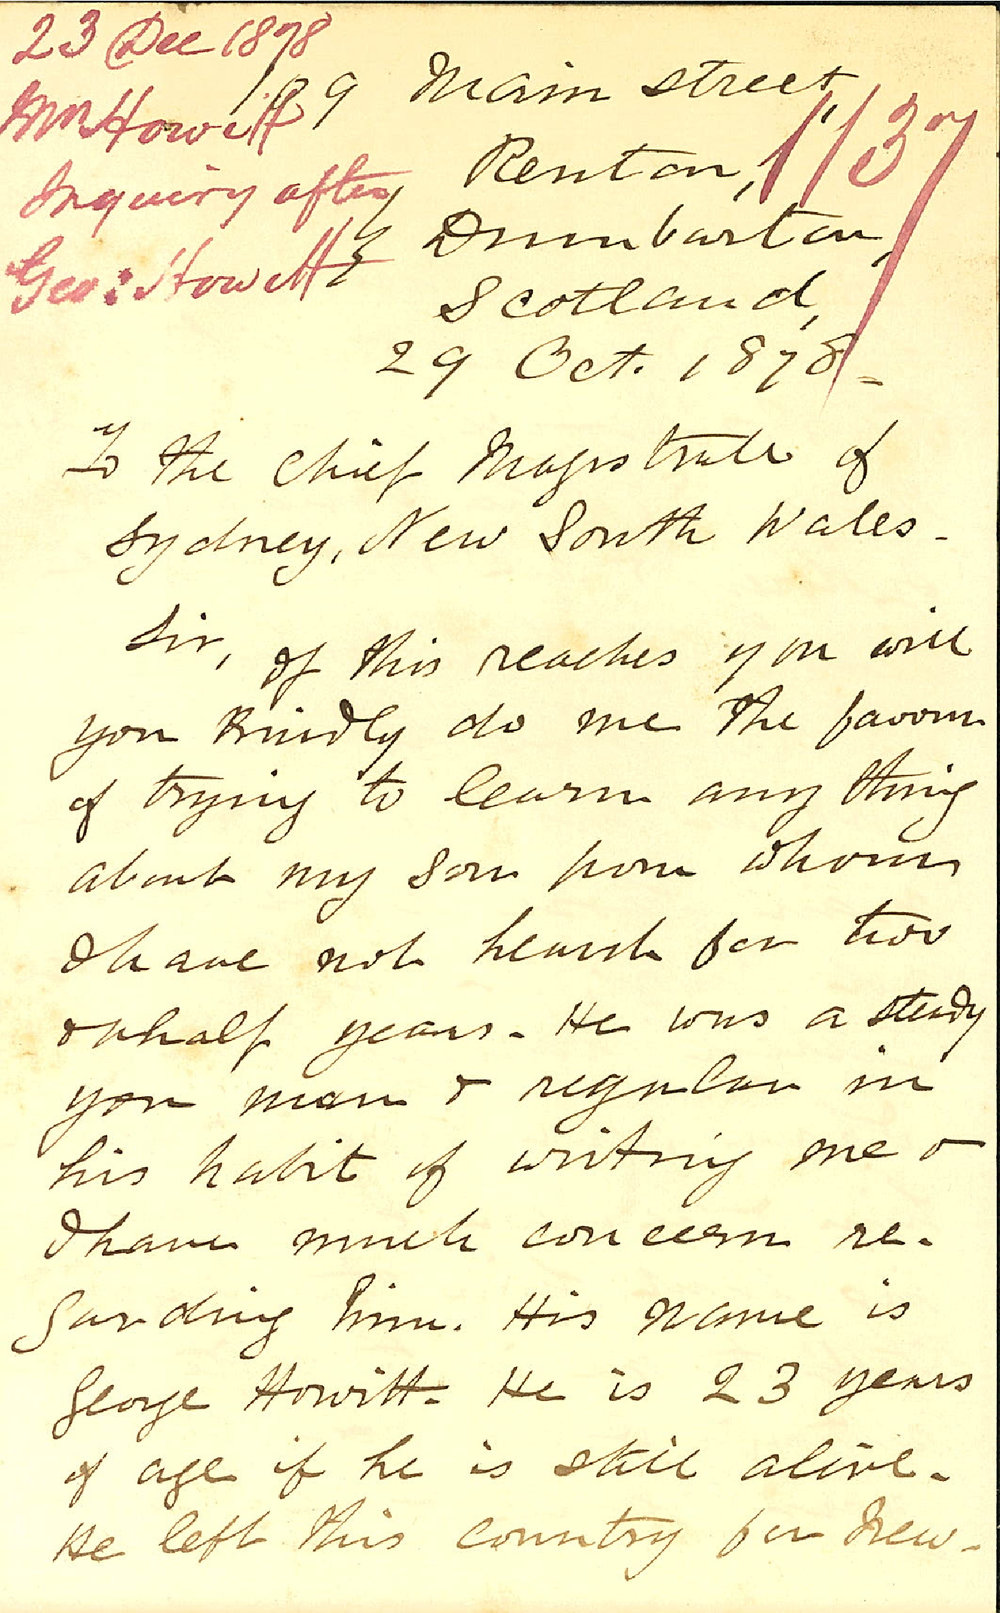 23 Dec 1878
Mr Howitt
Inquiry after
Geo: Howitt
189 Main Street
Renton,
Dumbarton,
Scotland,
29 Oct. 1878 -
To the Chief Magistrate of
Sydney, New South Wales -
Sir, If this reaches you will
you kindly do me the favour
of trying to learn any thing
about my son from whom
I have not heard for two
& a half years - He was a steady
you man & regular in
his habit of writing me &
I have much concern re-
garding him. His name is
George Howitt - He is 23 years
of age if he is still alive -
He left this country for New -